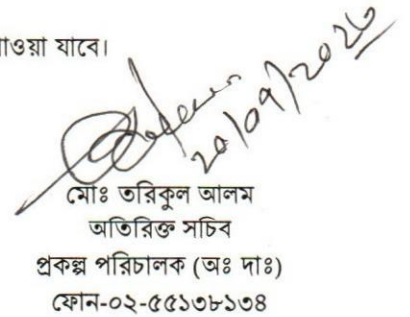 াওয়া যাবে।
২০/০৭/২০২৩
মোঃ তরিকুল আলম
অতিরিক্ত সচিব
প্রকল্প পরিচালক (অঃ দাঃ)
ফোন-০২-৫৫১৩৮১৩৪